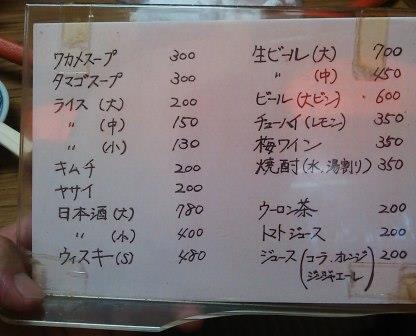 ワカメスープ 300
タマゴスープ 300
ライス (大) 200
〃 (中) 150
〃 (小) 130
キムチ 200
ヤサイ 200
日本酒 (大) 780
〃 (小) 400
ウィスキー (S) 480
生ビール (大) 700
〃 (中) 450
ビール (大ビン) 600
チューハイ (レモン) 350
梅ワイン 350
焼酎 (水、湯割り) 350
ウーロン茶 200
トマトジュース 200
ジュース (コーラ、オレンジ 200
ジンジャエール)